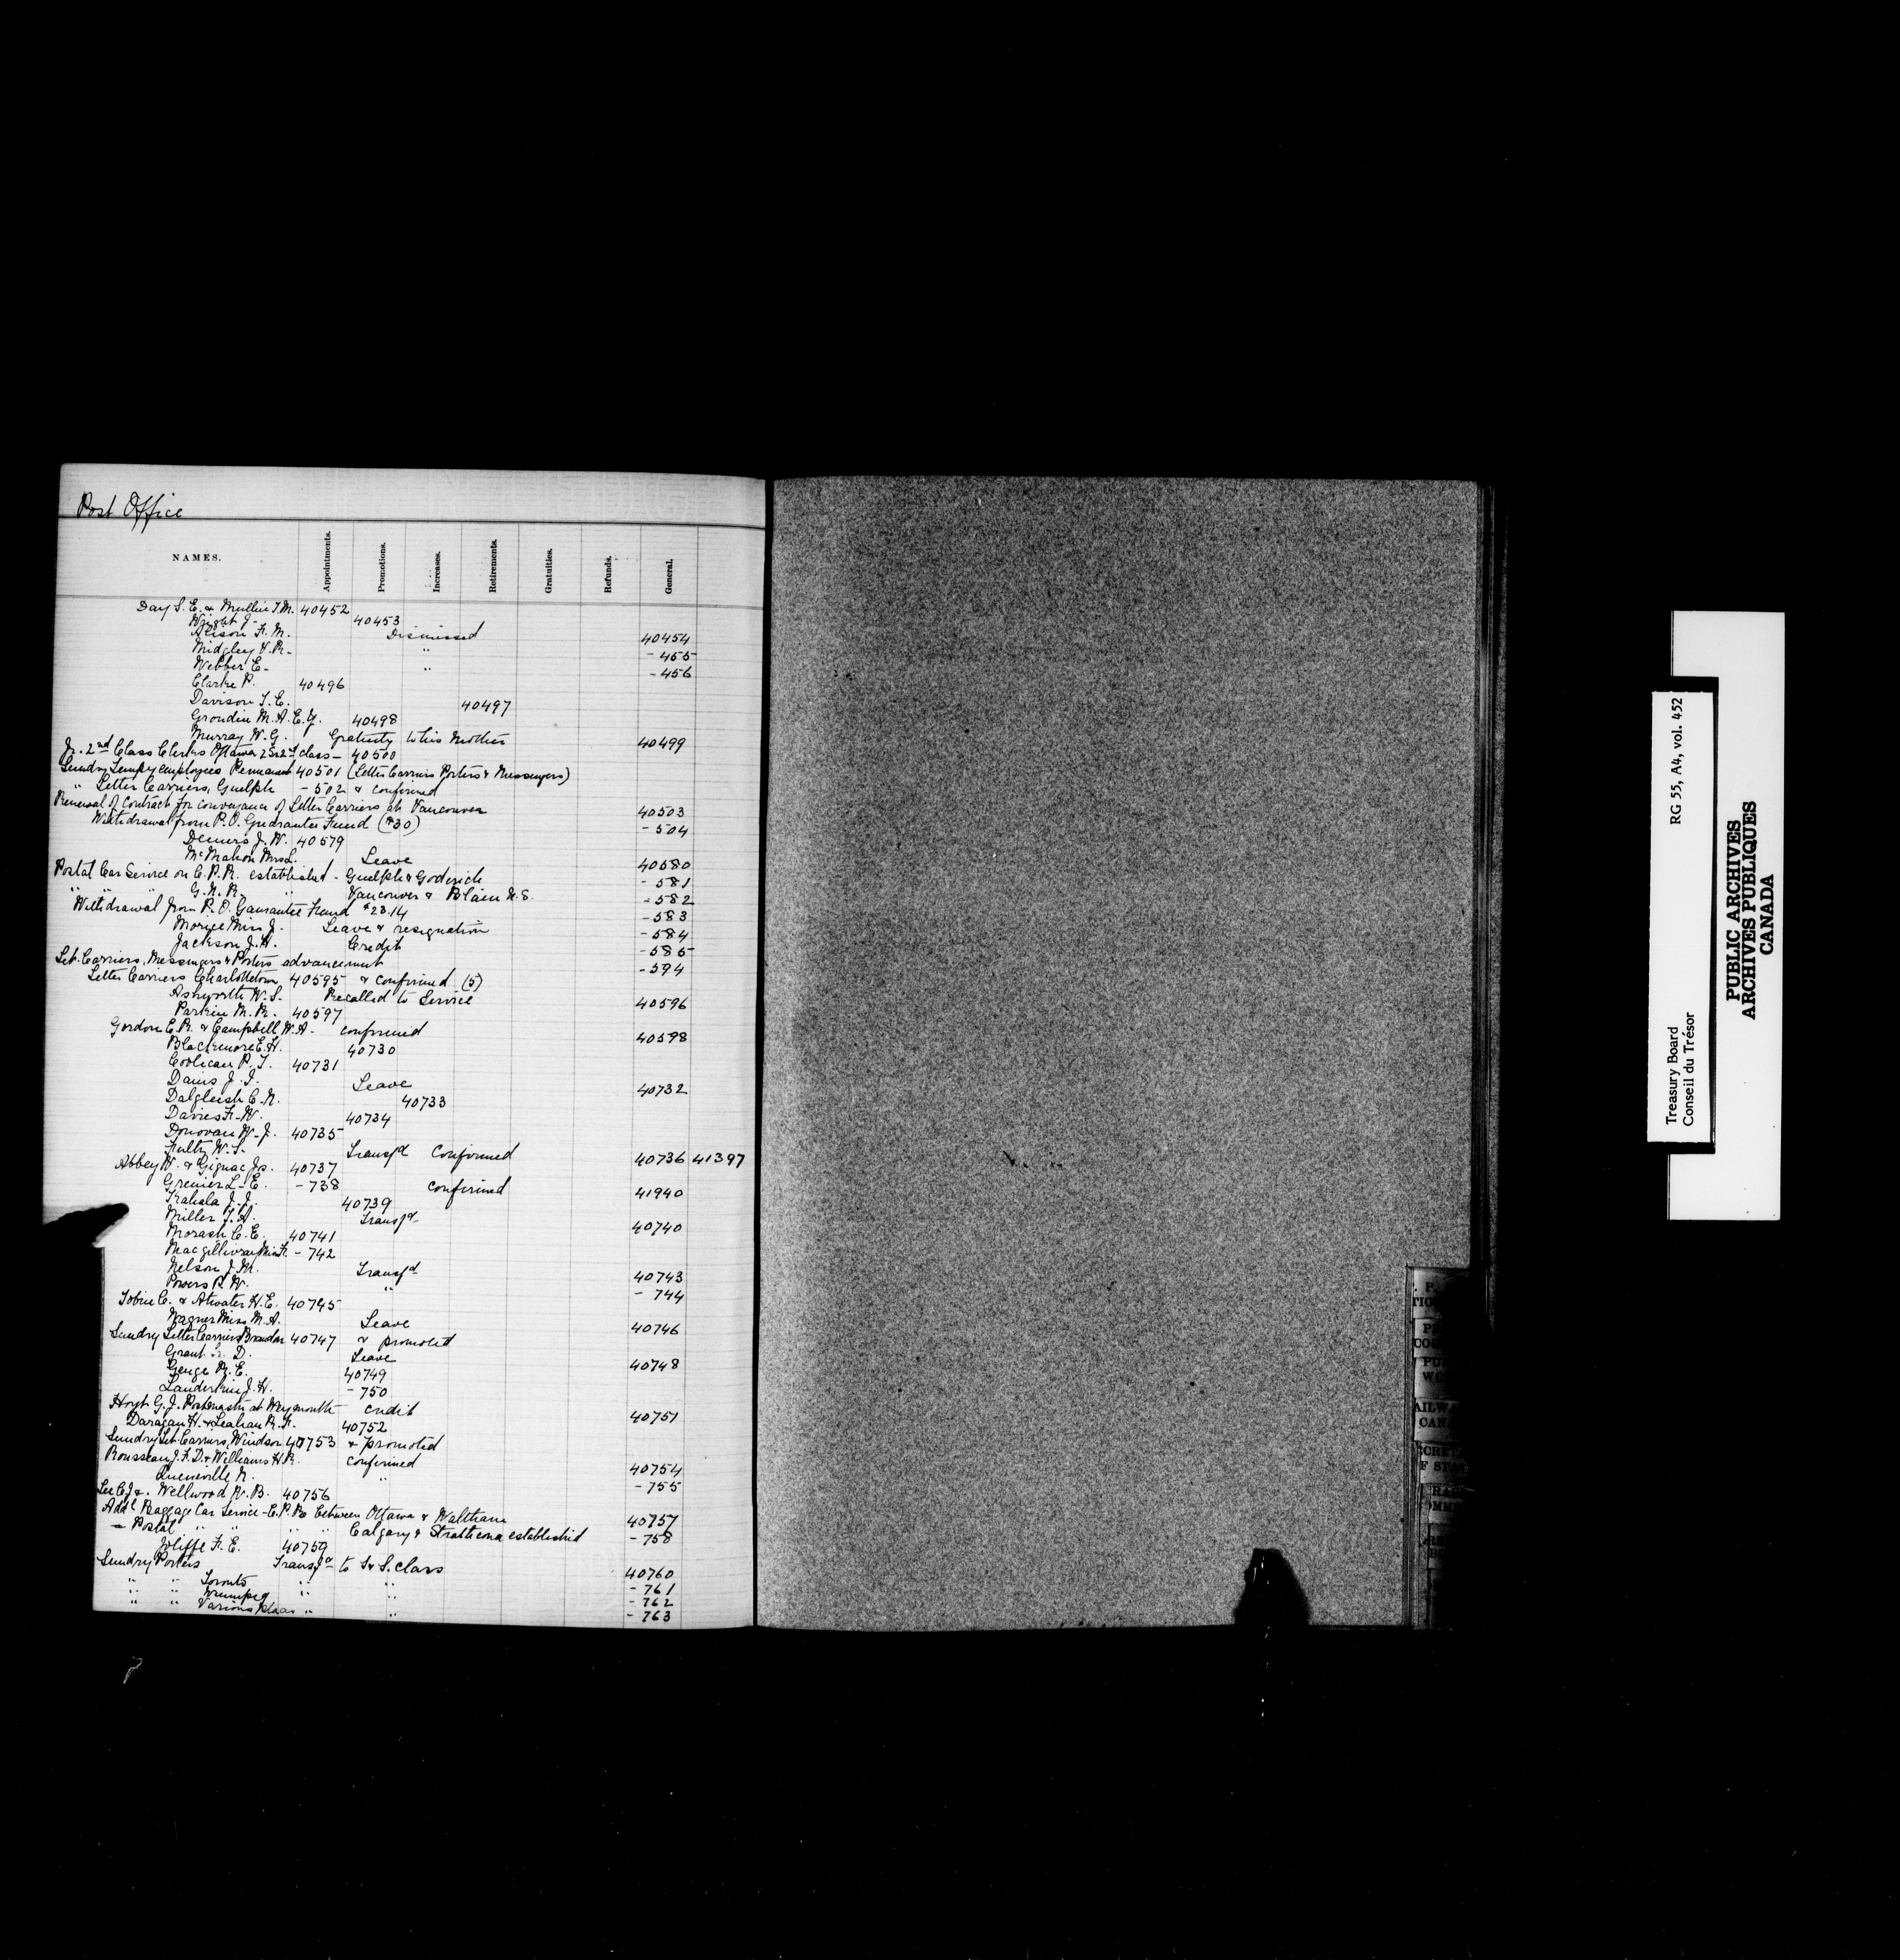 Post Office
NAMES. Appointments. Promotions. Increases. Retirements. Gratuities. Refunds. General.
Day S. E. & Mullin T. M. 40452
Wright J. 40453
Alison F. M. Dismissed 40454
Midgley V. R. " - 455
Webber E. " - 456
Clarke P. 40496
Davison T. E. 40497
Grondin M. A. E. Y. 40498
Murray W. G. Gratuity to his Mother 40499
Jr. 2nd Class Clerks Ottawa 2nd class - 40500
Sundry Tempy employees Permanent 40501 (Letter Carriers Porters & Messengers)
" Letter Carriers, Guelph - 502 & confirmed
Renewal of Contract for conveyance of Letter Carriers at Vancouver 40503
Withdrawal from P.O. Guarantee Fund ($30) - 504
Demers J. W. 40579
McMahon Mrs L. Leave 40580
Postal Car Service on C.P.R. established - Guelph & Goderich - 581
" " " G.N.R. " Vancouver & Blain U.S. - 582
Withdrawal from P.O. Garrantee Fund $23.14 - 583
Morice Miss J. Leave & resignation - 584
Jackson J. H. Credit - 585
Let. Carriers, Messengers & Porters advancement - 594
Letter Carriers Charlottetown 40595 & confirmed (5)
Ashworth W. S. Recalled to Service 40596
Parkin M. R. 40597
Gordon C. R. & Campbell W. A. confirmed 40598
Blackmore E. H. 40730
Coolican P. T. 40731
Danis J. I. Leave 40732
Dalgleish C. N. 40733
Davies F. W. 40734
Donovan W. J. 40735
Fultz W. S. Transfd Confirmed 40736 41397
Abbey W. & Gignac Js. 40737
Grenier L. E. - 738 confirmed 41940
Kahala J. J. 40739
Miller T. A. Transfd 40740
Morash C. E. 40741
MacGillivray Miss F. - 742
Nelson J. M. Transfd 40743
Powers B. W. " - 744
Tobin C. & Atwater H. E. 40745
Wagner Miss M. A. Leave 40746
Sundry Letter Carriers Brandon 40747 & promoted
Grant D. Leave 40748
Genge R. E. 40749
Landerkin J. H. - 750
Hoyt G. J. Postmaster at Weymouth credit 40751
Daragan H. & Leahan R. F. 40752
Sundry Let. Carriers, Windsor 40753 & promoted
Rousseau J. F. D. & Williams H. R. confirmed 40754
Queneville N. " - 755
Lee C. J. & Wellwood W. B. 40756
Addl Baggage Car Service - C.P.R. between Ottawa & Waltham 40757
- Postal " " " " Calgary & Strathcona established - 758
Joliffe F. E. 40759
Sundry Porters Transfd to S & S. class 40760
" " Toronto " " - 761
" " Winnipeg " " - 762
" " Various places " " - 763
Treasury Board RG 55, A4, vol. 452
Conseil du Trésor
PUBLIC ARCHIVES
ARCHIVES PUBLIQUES
CANADA